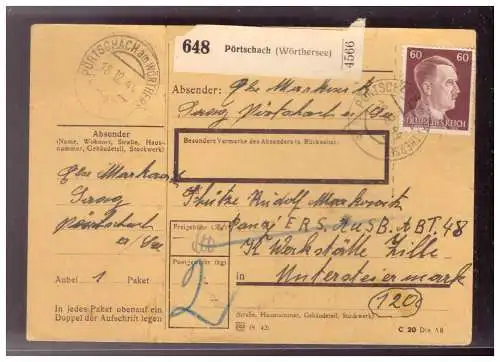 PÖRTSCHACH am WÖRTHERSEE
18.12.44
648 Pörtschach (Wörthersee)
4566
60 60
DEUTSCHES REICH
Absender
(Name, Wohnort, Straße, Haus-
nummer, Gebäudeteil, Stockwerk)
Markowitz
Sang
Pörtschach
a/See
Anbei 1 Paket
In jedes Paket obenauf ein
Doppel der Aufschrift legen
Absender: Markowitz
Sang Pörtschach a/See
Besondere Vermerke des Absenders (s. Rückseite):
Schütze Rudolf Markowitz
Panz. ERS. AuSB. ABT. 48
K Werkstätte Zille
in Untersteiermark
(120)
Postgewicht (kg)
2
(Straße, Hausnummer, Gebäudeteil, Stockwerk)
C 20 Din A6